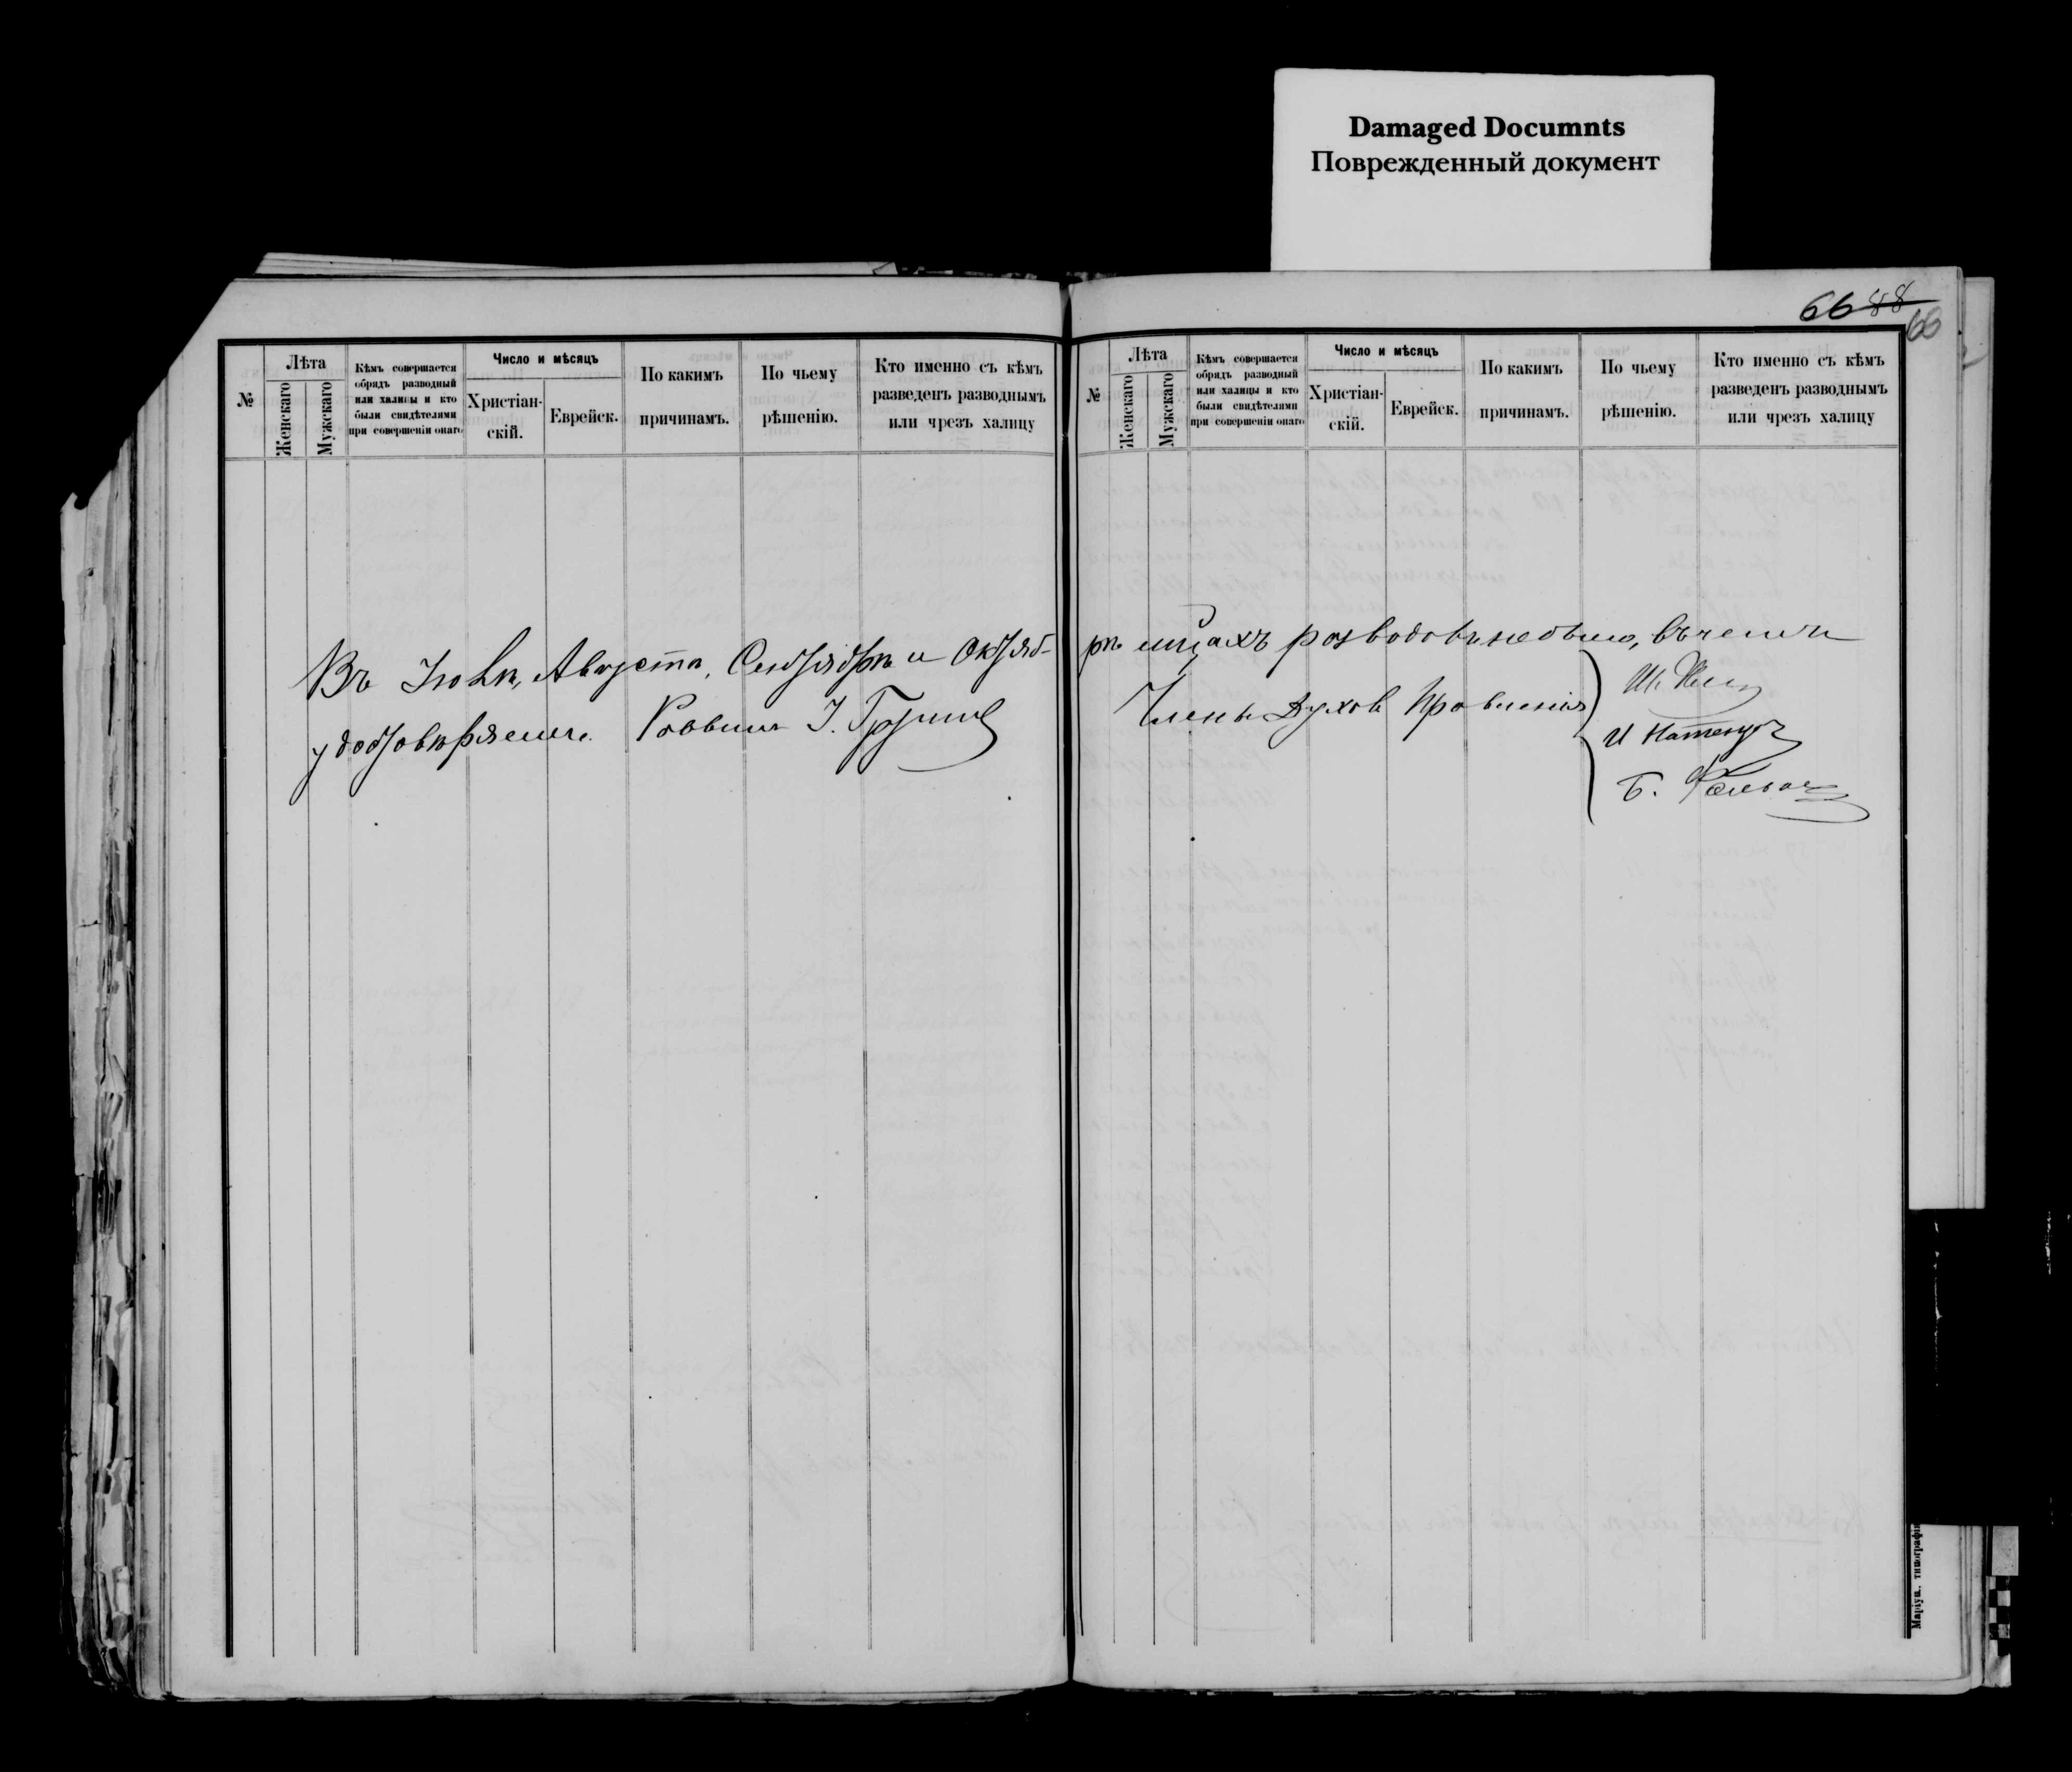 Damaged Documnts
Поврежденный документ
66 48
66
№
Лѣта
Женскаго
Мужскаго
Кѣмъ совершается
обрядъ разводный
или халицы и кто
были свидѣтелями
при совершеніи онаго
Число и мѣсяцъ
Христіан-
скій.
Еврейск.
По какимъ
причинамъ.
По чьему
рѣшенію.
Кто именно съ кѣмъ
разведенъ разводнымъ
или чрезъ халицу
Въ Іюлѣ, Августѣ, Сентябрѣ и Октяб-
удостовѣряемъ. Раввинъ І.
№
Лѣта
Женскаго
Мужскаго
Кѣмъ совершается
обрядъ разводный
или халицы и кто
были свидѣтелями
при совершеніи онаго
Число и мѣсяцъ
Христіан-
скій.
Еврейск.
По какимъ
причинамъ.
По чьему
рѣшенію.
Кто именно съ кѣмъ
разведенъ разводнымъ
или чрезъ халицу
рѣ мцахъ разводовъ небыло, въ чемъ и
Члены Духов Правленія
Ш.
И
Б.
Маріуп., типографія